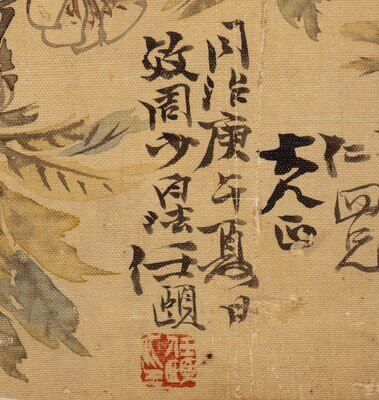 仁四兄
大人正
同治庚午夏日
效周少白法任頤